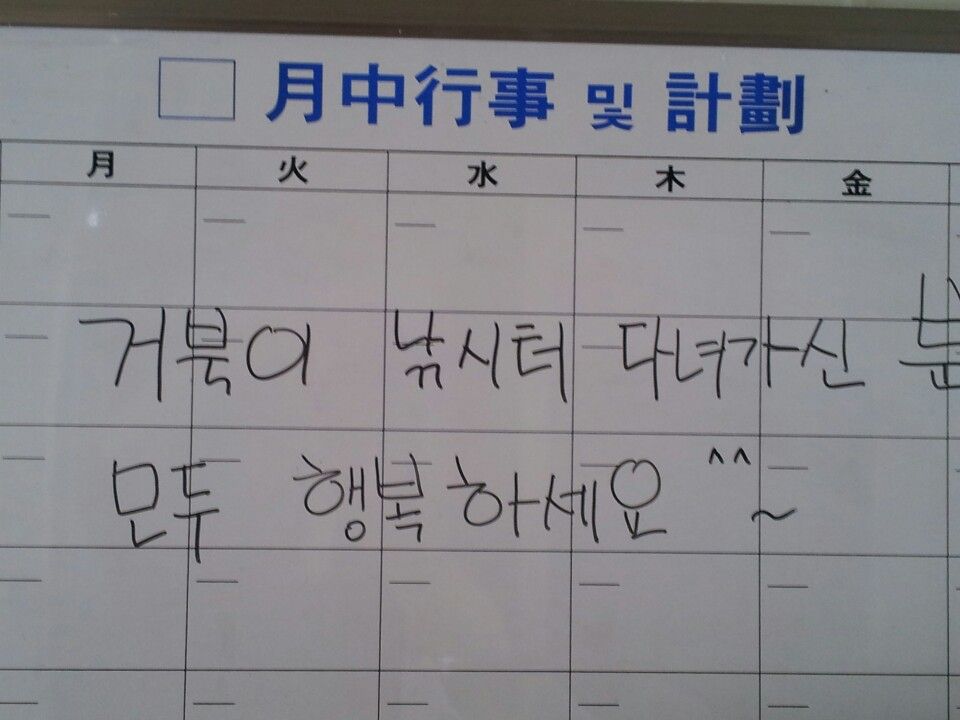 月中行事 및 計劃
月 火 水 木 金
거북이 낚시터 다녀가신 분
모두 행복하세요 ^^ ~